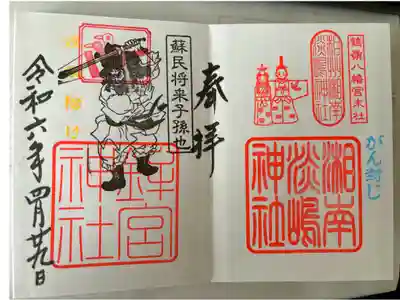 鶴嶺八幡宮末社
がん封じ
湘南
淡嶋
神社
奉拝
蘇民将来子孫也
鉾宮
神社
令和六年四月廿九日